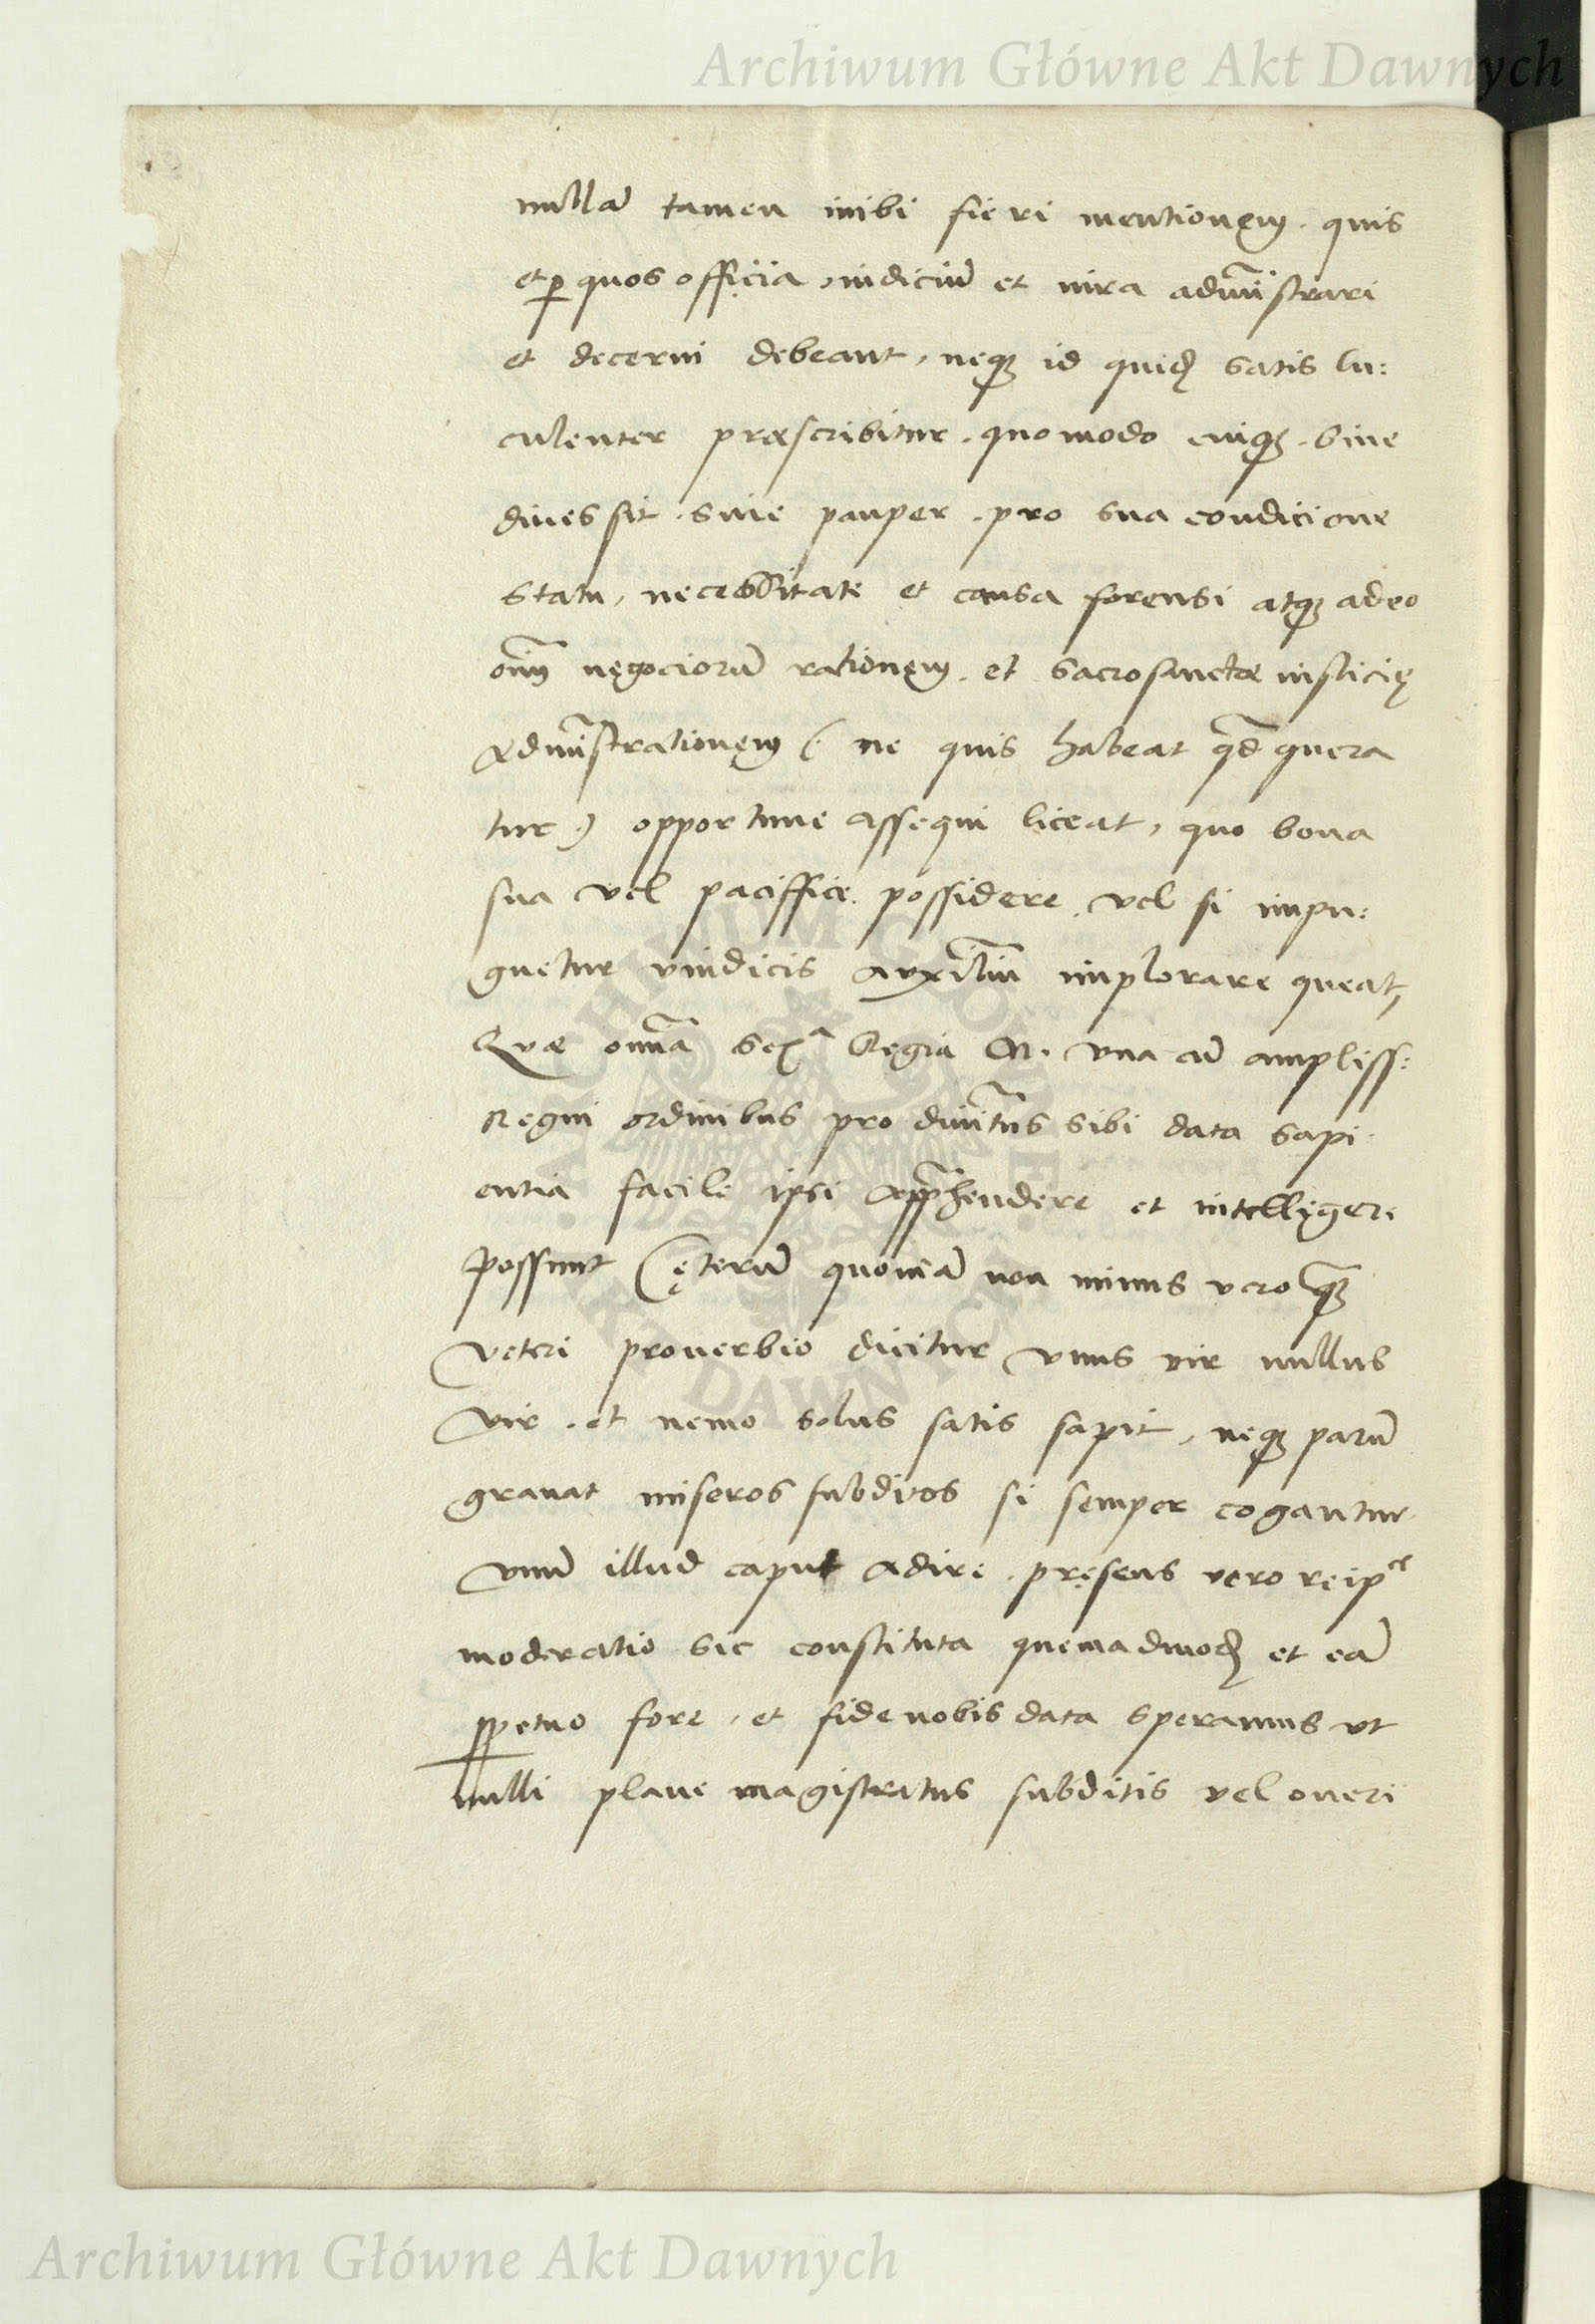 Archiwum Główne Akt Dawnych
nullã tamen inibi fieri mentionem. quis
et ꝑ quos officia, iudiciũ et iura admĩstrari
et decerni debeant, neqꝫ id quidẽ satis lu:
culenter præscribitur. quomodo cuiqꝫ. siue
diues sit. siue pauper. pro sua condicione
statu, necessitate et causa forensi atqꝫ adeo
oĩm negociorũ rationem. et sacrosanctæ iusticię
admĩstrationem (. ne quis habeat qd̃ quera
tur.) opportune assequi liceat, quo bona
sua vel paciffice. possidere, vel si impu:
gnetur vindicis auxiliũ implorare queat,
Quæ omñia Scrᵃ Regia M. vna cũ ampliss:
Regni ordinibus pro diuĩtus sibi data sapi
entia facile ipsi apprhendere et intelligere
possunt Cęterũ quoniã non minus vero qꝫ
veteri prouerbio dicitur vnus vir nullus
vir. et nemo solus satis sapit, neqꝫ parũ
grauat miseros subditos si semper cogantur
vnũ illud caput adire. pręsens vero reipᶜᵉ
moderatio sic constituta quemadmodũ et eã
ꝑpetuo fore, et fide nobis data speramus vt
nulli plane magistratus subditis vel oneri
ARCHIWUM GŁÓWNE
AKT DAWNYCH
Archiwum Główne Akt Dawnych